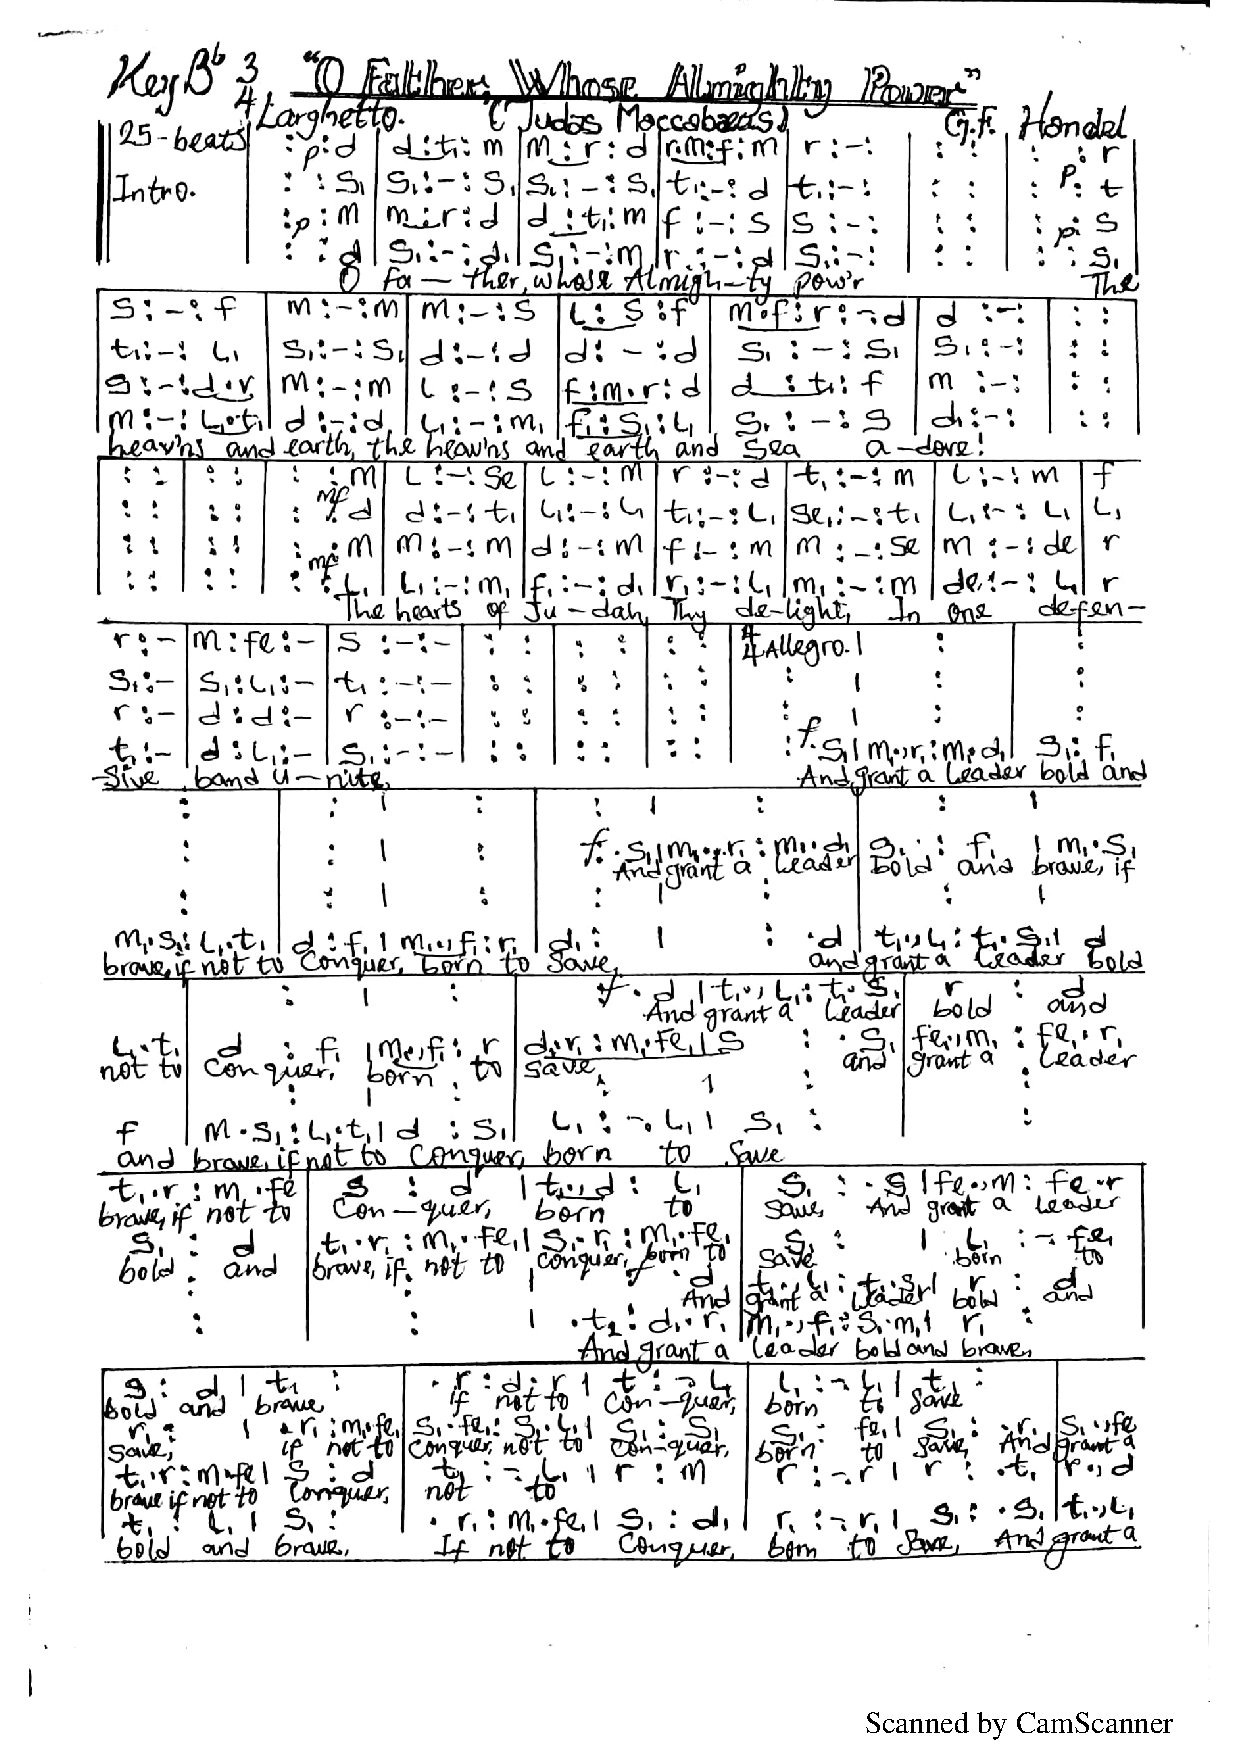 Key B♭ 3/4 "O Father, Whose Almighty Power"
Larghetto. (Judas Maccabaeus) G.F. Handel
25-beats Intro.
: p : d | d : t₁ : m | m : r : d | r.m : f : m | r : - : | : : | : : r
: : s₁ | s₁ : - : s₁ | s₁ : - : s₁ | t₁ : - : d | t₁ : - : | : : | : p. : t
: p : m | m : r : d | d : t₁ : m | f : - : s | s : - : | : : | : p : s
: : d | s₁ : - : d₁ | s₁ : - : m | r : - : d | s₁ : - : | : : | : : s₁
O fa - ther, whose Almigh-ty pow'r The
s : - : f | m : - : m | m : - : s | l : s : f | m.f : r : -.d | d : - : | : :
t₁ : - : l₁ | s₁ : - : s₁ | d : - : d | d : - : d | s₁ : - : s₁ | s₁ : - : | : :
s : - : d.r | m : - : m | l : - : s | f : m.r : d | d : t₁ : f | m : - : | : :
m : - : l₁.t₁ | d : - : d₁ | l₁ : - : m₁ | f₁ : s₁ : l₁ | s₁ : - : s | d₁ : - : | : :
heav'ns and earth, the heav'ns and earth and Sea a-dore!
: : | : : | : : m | l : - : se | l : - : m | r : - : d | t₁ : - : m | l : - : m | f
: : | : : | : mf : d | d : - : t₁ | l₁ : - : l₁ | t₁ : - : l₁ | se₁ : - : t₁ | l₁ : - : l₁ | l₁
: : | : : | : : m | m : - : m | d : - : m | f : - : m | m : - : se | m : - : de | r
: : | : : | : mf : l₁ | l₁ : - : m₁ | f₁ : - : d₁ | r₁ : - : l₁ | m₁ : - : m | de : - : l₁ | r
The hearts of Ju-dah, Thy de-light, In one defen-
r : - | m : fe : - | s : - : - | : : | : : | : : | 4/4 Allegro. | : | :
s₁ : - | s₁ : l₁ : - | t₁ : - : - | : : | : : | : : | : | : | :
r : - | d : d : - | r : - : - | : : | : : | : : | : | : | :
t₁ : - | d : l₁ : - | s₁ : - : - | : : | : : | : : | : f . s₁ | m₁ ., r₁ : m₁ . d₁ | s₁ : f₁
-sive band u-nite, And, grant a Leader bold and
: | : | : | : | : | : |
: | : | : | f . s₁ | m₁ ., r₁ : m₁ . d₁ | s₁ : f₁ | m₁ . s₁
And grant a Leader bold and brave, if
: | : | : | : | : | : |
m₁ . s₁ : l₁ . t₁ | d : f₁ | m₁ ., f₁ : r₁ | d₁ : | : . d | t₁ ., l₁ : t₁ . s₁ | d
brave, if not to Conquer, born to Save, and grant a Leader bold
: | : | f . d | t₁ ., l₁ : t₁ . s₁ | r : d
And grant a Leader bold and
l₁ . t₁ | d : f₁ | m₁ ., f₁ : r | d₁ . r₁ : m₁ . fe₁ | s : . s₁ | fe₁ ., m₁ : fe₁ . r₁
not to Conquer, born to save, and grant a Leader
: | : | : | : | :
f | m . s₁ : l₁ . t₁ | d : s₁ | l₁ : - . l₁ | s₁ : | :
and brave, if not to Conquer, born to Save
t₁ . r : m . fe | s : d | t₁ ., d : l₁ | s₁ : . s | fe ., m : fe . r
brave, if not to Con-quer, born to save, And grant a Leader
s₁ : d | t₁ . r₁ : m₁ . fe₁ | s₁ . r₁ : m₁ . fe₁ | s₁ : | l₁ : - . fe₁
bold and brave, if not to conquer, born to save born to
: | : | : f . d | t₁ ., l₁ : t₁ . s₁ | r : d
And grant a Leader bold and
: | : | . t₂ : d₁ . r₁ | m₁ ., f₁ : s₁ . m₁ | r₁ :
And grant a Leader bold and brave,
s : d | t₁ : | . r : d . r | t : - . l₁ | l₁ : - . l₁ | t₁ :
bold and brave if not to Con-quer, born to save
r₁ : | . r₁ : m₁ . fe₁ | s₁ . fe₁ : s₁ . l₁ | s₁ : s₁ | s₁ : fe₁ | s₁ : . r₁ | s₁ ., fe
save, if not to Conquer, not to con-quer, born to save, And grant a
t₁ . r : m . fe | s : d | t₁ : - . l₁ | r : m | r : - . r | r : . t₁ | r ., d
brave if not to Conquer, not to
t₁ : l₁ | s₁ : | . r₁ : m₁ . fe₁ | s₁ : d₁ | r₁ : - . r₁ | s₁ : . s₁ | t₁ ., l₁
bold and brave, If not to Conquer, born to Save, And grant a
Scanned by CamScanner